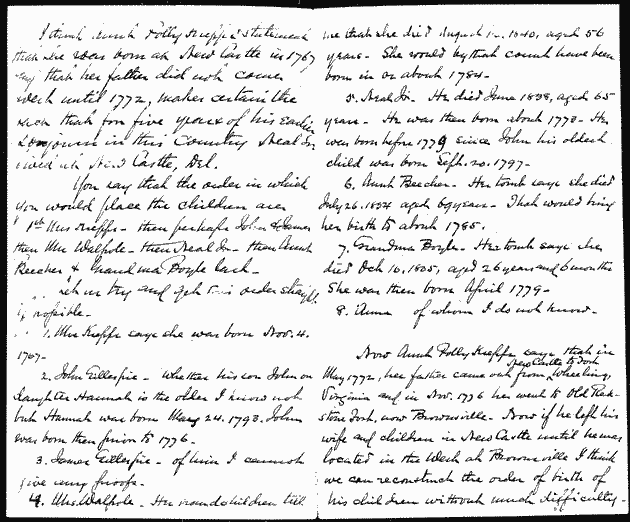 I think Aunt Polly Kieffs' statement
that she was born at New Castle in 1767
says that her father did not come
west until 1772, makes certain the
view that for five years of his earlier
sojourn in this Country Neal Sr.
lived at New Castle, Del.
You say that the order in which
you would place the children are
1st Mrs Kieffs - then perhaps John & James
then Mrs Walpole - then Neal Jr. - then Aunt
Beecher & Grandma Boyle last -
let us try and get this order straight
if possible.
1. Mrs Kieffs says she was born Nov. 4.
1767-
2. John Gillespie - Whether his son John or
daughter Hannah is the older I know not
but Hannah was born May 24. 1793. John
was born then prior to 1776 -
3. James Gillespie - of him I cannot
give any proofs -
4. Mrs. Walpole - Her children tell
me that she died August 12. 1840, aged 56
years - She would by that count have been
born in or about 1784 -
5. Neal Jr. He died June 1838, aged 65
years - He was then born about 1773 - He
was born before 1779 since John his oldest
child was born Sept. 20. 1797 -
6. Aunt Beecher - Her tomb says she died
July 26. 1854 aged 69 years - That would bring
her birth to about 1785.
7. Grandma Boyle - Her tomb says she
died Oct 10. 1805, aged 26 years and 6 months
She was then born April 1779 -
8. Anna of whom I do not know -
Now Aunt Polly Kieffs says that in
New Castle to Fort
May, 1772, her father came out from Wheeling,
Virginia and in Nov. 1776 he went to Old Red-
stone Fort, now Brownsville - Now if he left his
wife and children in New Castle until he was
located in the West at Brownsville I think
we can reconstruct the order of birth of
his children without much difficulty -